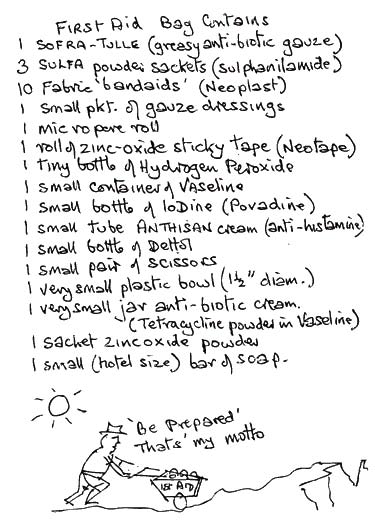 First Aid Bag Contains
1 SOFRA-TULLE (greasy anti-biotic gauze)
3 SULFA powder sachets (sulphanilamide)
10 Fabric 'bandaids' (Neoplast)
1 small pkt. of gauze dressings
1 micropore roll
1 roll of zinc-oxide sticky tape (Neotape)
1 tiny bottle of Hydrogen Peroxide
1 small container of Vaseline
1 small bottle of IODine (Povadine)
1 small tube ANTHISAN cream (anti-histamine)
1 small bottle of Dettol
1 small pair of scissors
1 very small plastic bowl (1½" diam.)
1 very small jar anti-biotic cream.
(Tetracycline powder in Vaseline)
1 sachet zinc oxide powder
1 small (hotel size) bar of soap.
'Be Prepared'
Thats' my motto
1st AID